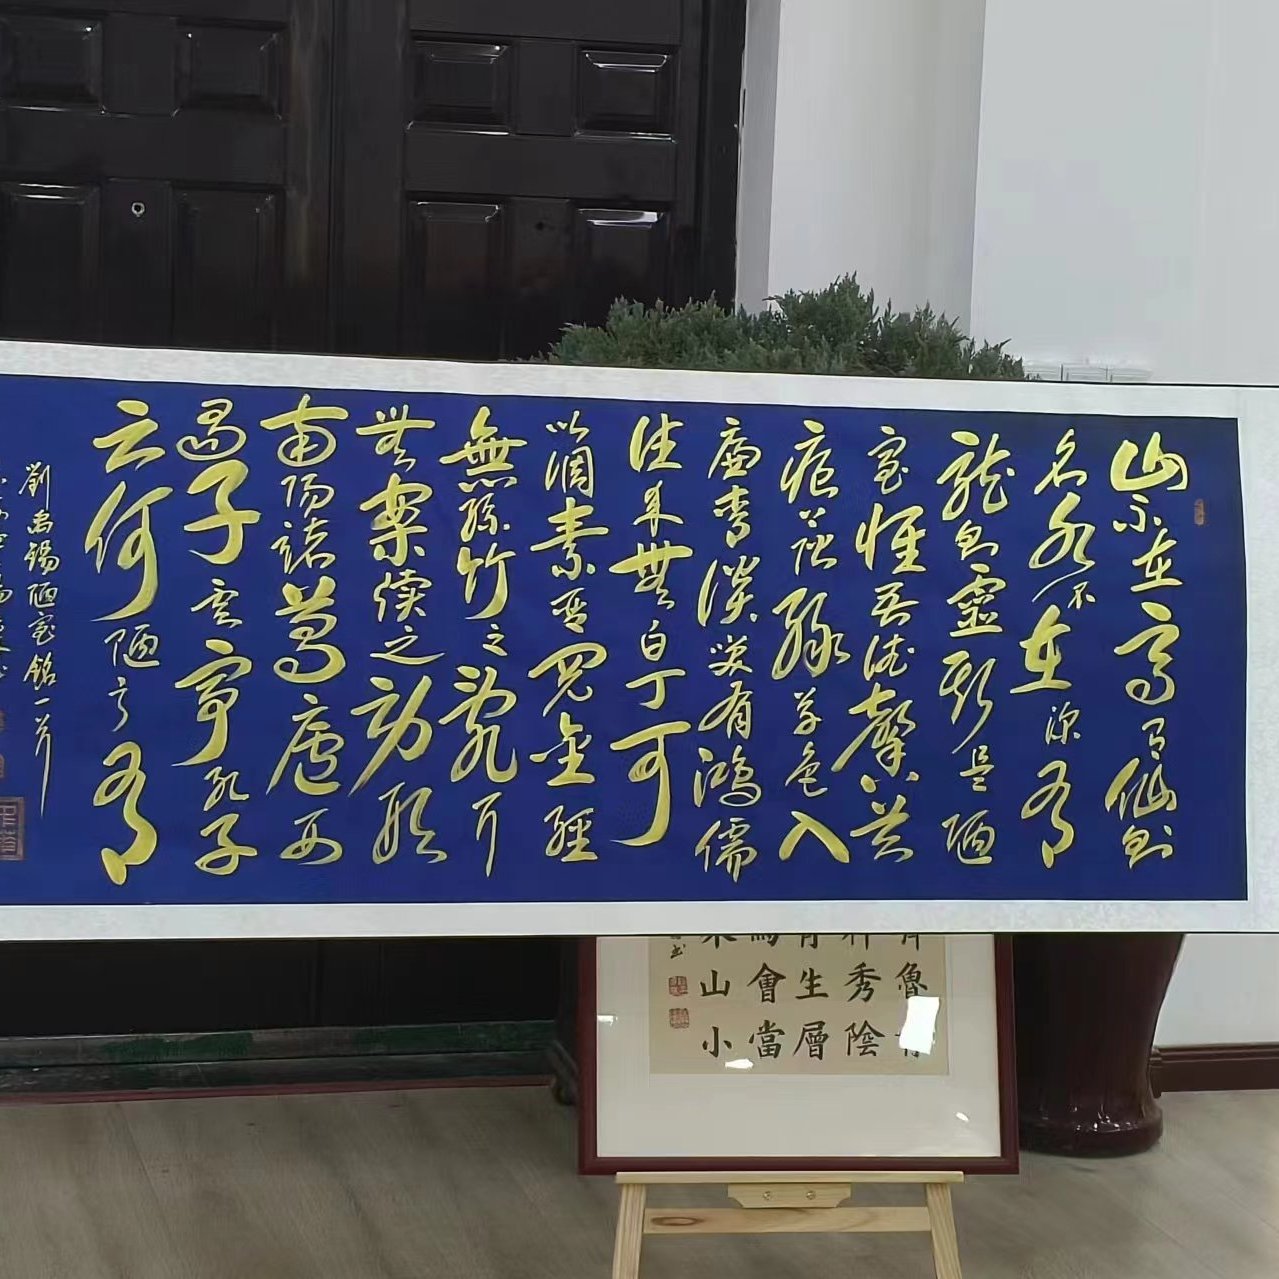 山不在高有仙則
名水不在深有
龍則靈斯是陋
室惟吾德馨苔
痕上階綠草色入
簾青談笑有鴻儒
往來無白丁可
以調素琴閱金經
無絲竹之亂耳
無案牘之勞形
南陽諸葛廬西
蜀子雲亭孔子
云何陋之有
劉禹錫陋室銘一首
魯
秀陰
生層
會當
山小